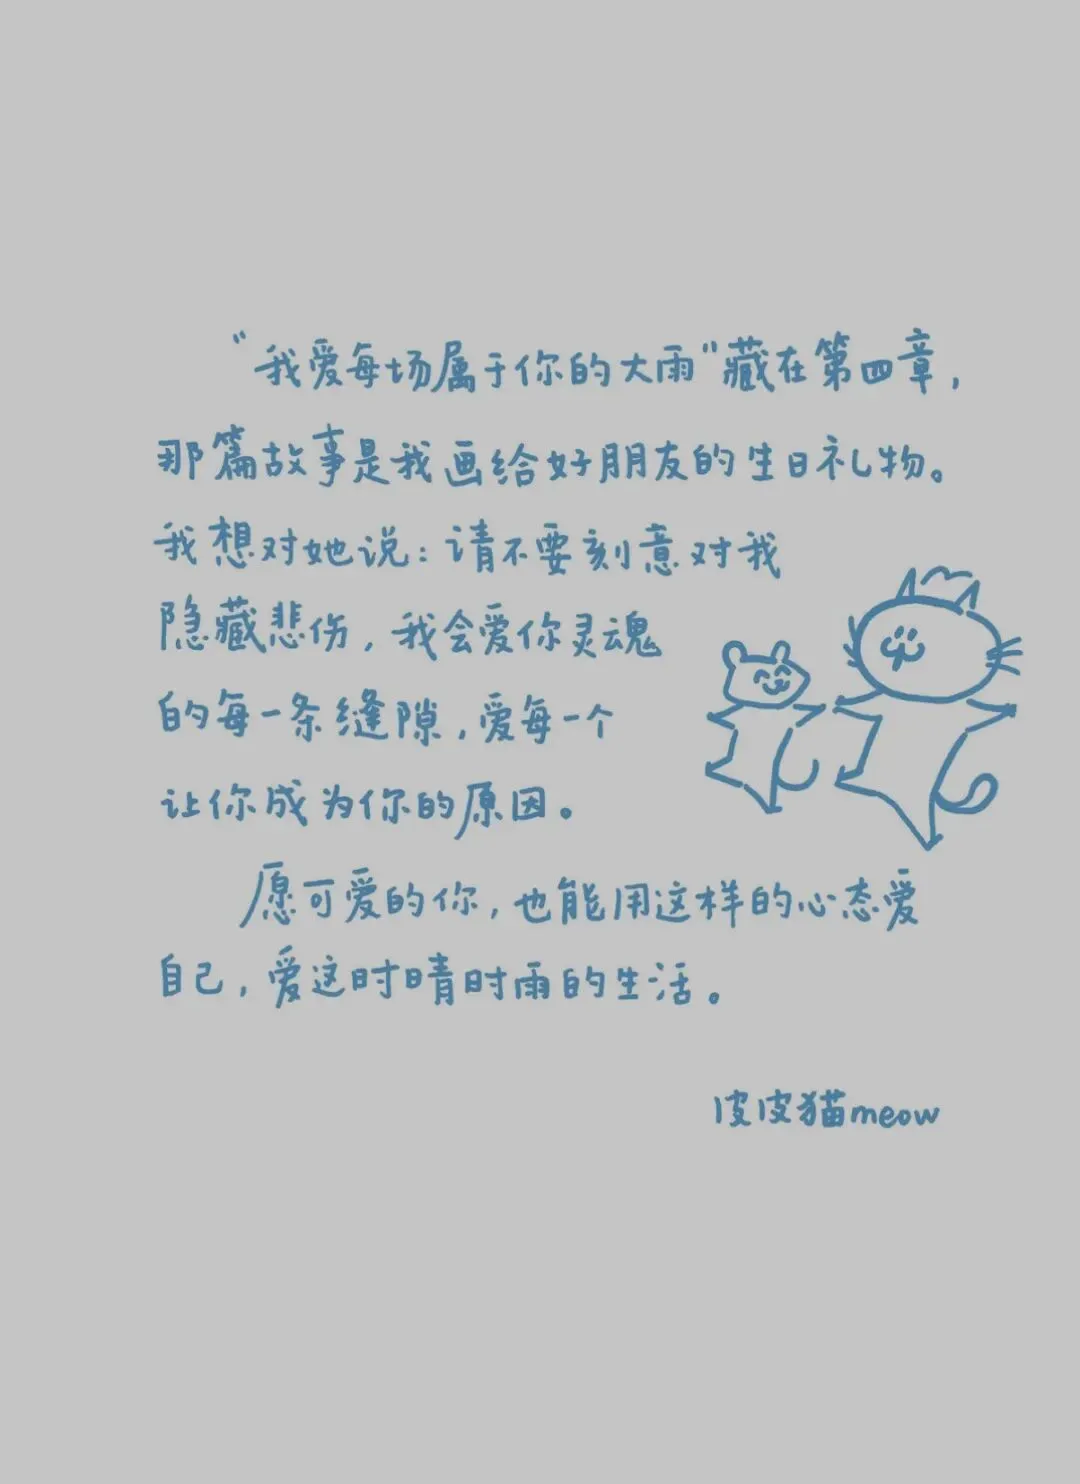 “我爱每场属于你的大雨”藏在第四章，
那篇故事是我画给好朋友的生日礼物。
我想对她说：请不要刻意对我
隐藏悲伤，我会爱你灵魂
的每一条缝隙，爱每一个
让你成为你的原因。
愿可爱的你，也能用这样的心态爱
自己，爱这时晴时雨的生活。
皮皮猫meow